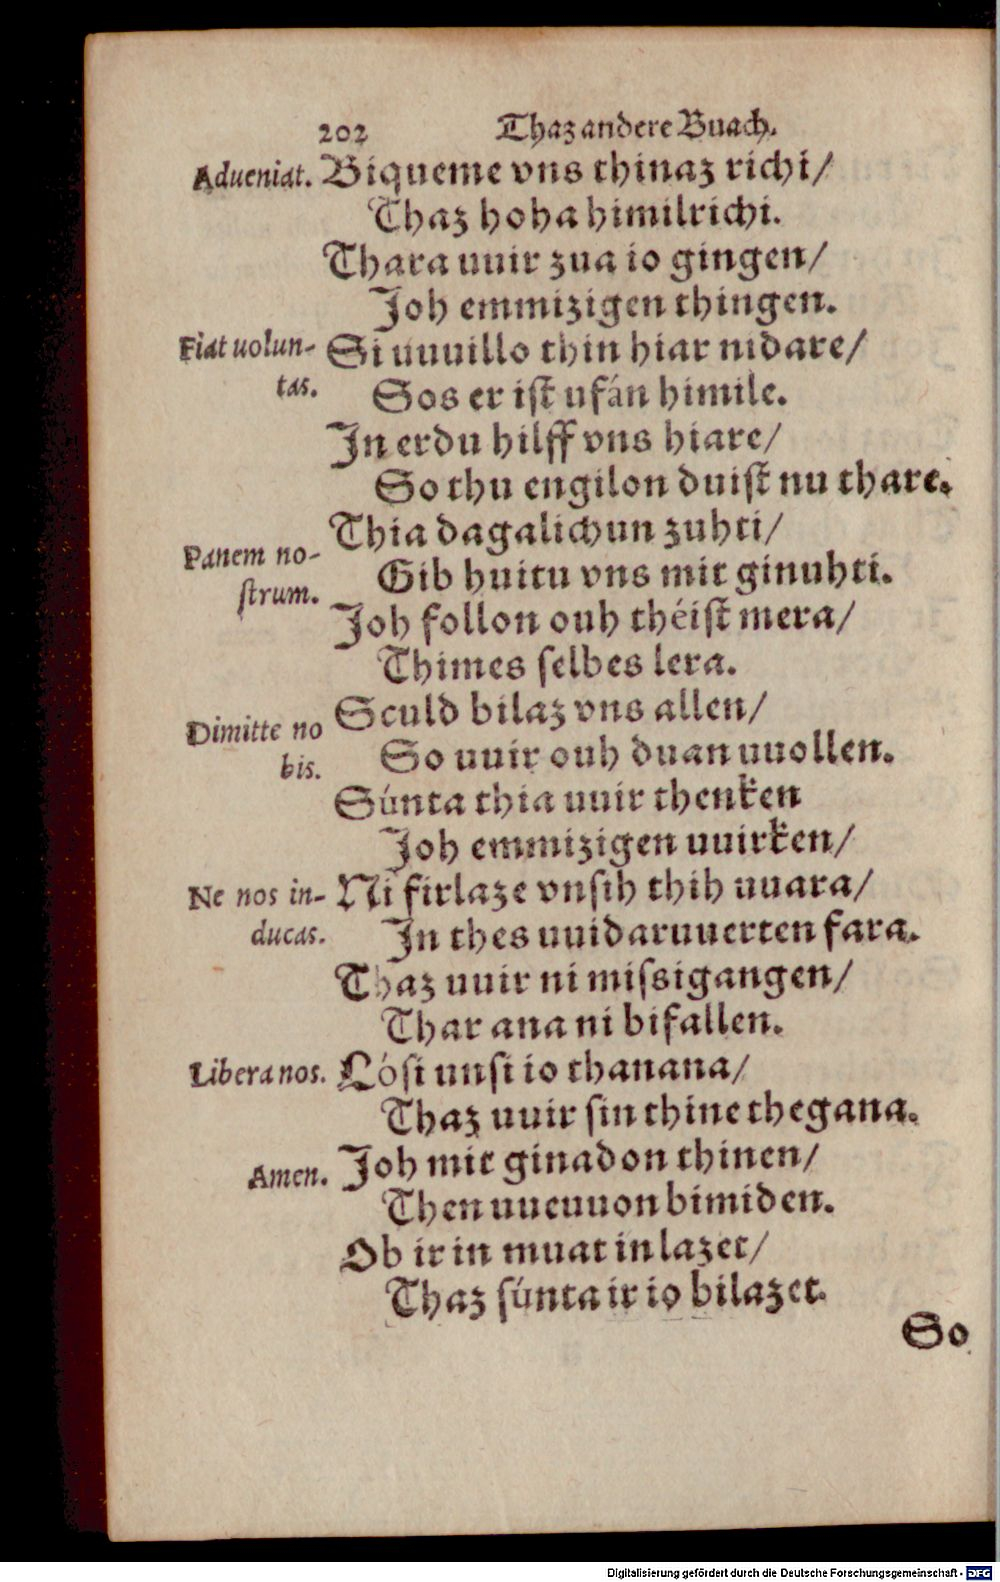 202 Thaz andere Buach.
Adueniat. Biqueme vns thinaz richi/
Thaz hoha himilrichi.
Thara uuir zua io gingen/
Joh emmizigen thingen.
Fiat uolun- Si uuuillo thin hiar nidare/
tas. Sos er ist ufán himile.
In erdu hilff vns hiare/
So thu engilon duist nu thare.
Thia dagalichun zuhti/
Panem no- Gib huitu vns mit ginuhti.
strum. Joh follon ouh théist mera/
Thimes selbes lera.
Dimitte no Sculd bilaz vns allen/
bis. So uuir ouh duan uuollen.
Súnta thia uuir thenken
Joh emmizigen uuirken/
Ne nos in- Ni firlaze vnsih thih uuara/
ducas. In thes uuidaruuerten fara.
Thaz uuir ni missigangen/
Thar ana ni bifallen.
Libera nos. Lósi unsi io thanana/
Thaz uuir sin thine thegana.
Amen. Joh mit ginadon thinen/
Then uueuuon bimiden.
Ob ir in muat in lazet/
Thaz súnta ir io bilazet.
So
Digitalisierung gefördert durch die Deutsche Forschungsgemeinschaft - DFG